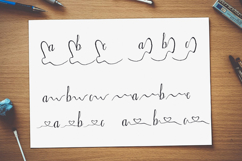 a b c a b c
a b c a b c
a b c a b a